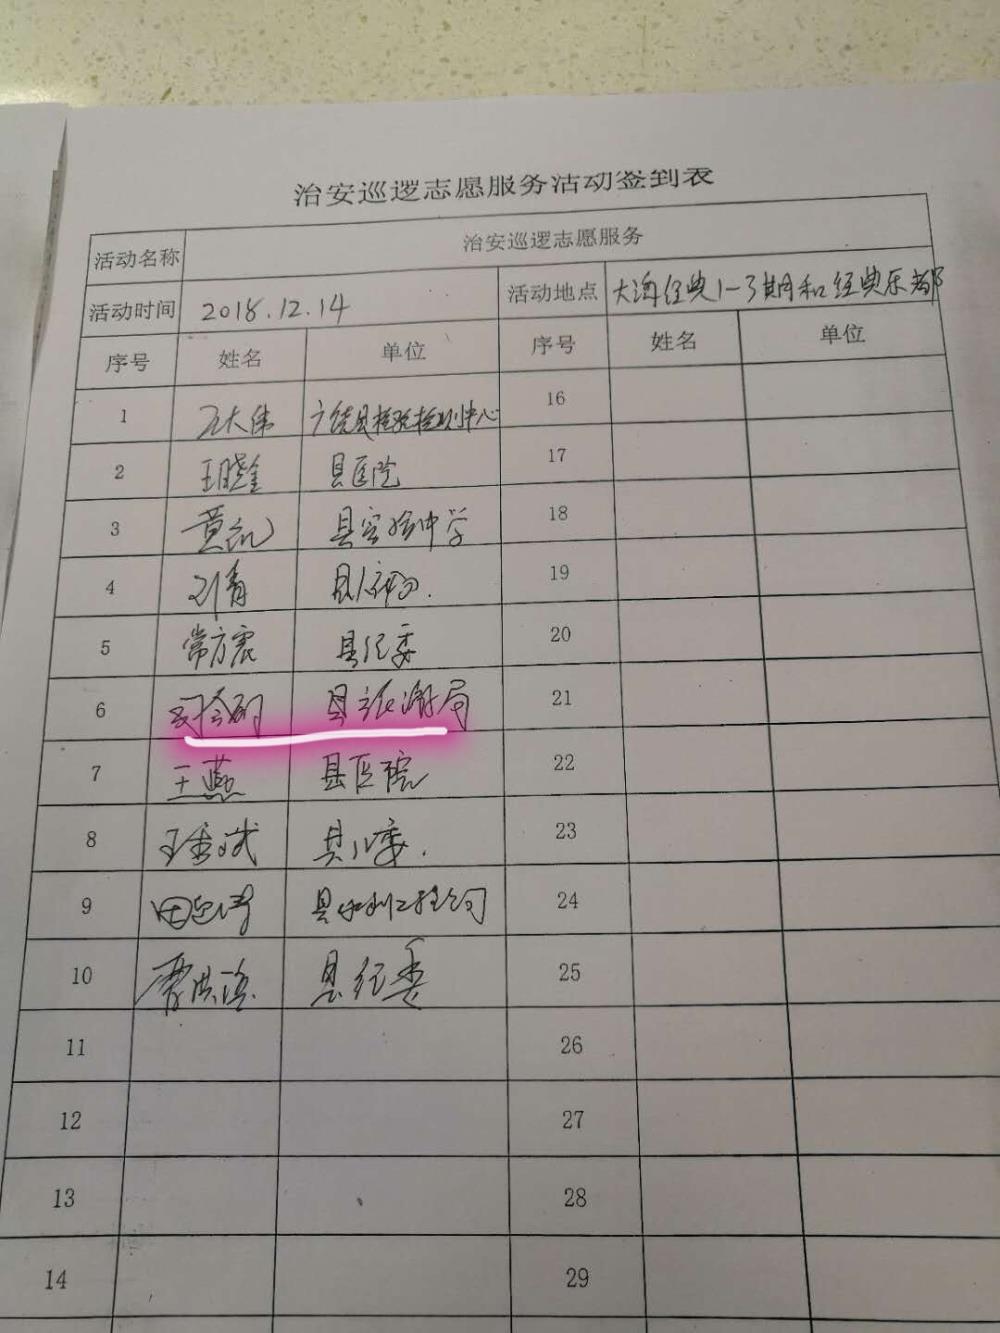 治安巡逻志愿服务活动签到表
活动名称 治安巡逻志愿服务
活动时间 2018.12.14 活动地点 大海经典1-3期和经典乐都
序号 姓名 单位 序号 姓名 单位
1 大伟 广饶县检验检测中心 16
2 王晓 县医院 17
3 黄凯 县实验中学 18
4 刘青 县 19
5 常方震 县纪委 20
6 县 局 21
7 王燕 县医院 22
8 王 斌 县 委. 23
9 田 涛 县水利工程公司 24
10 洪 县纪委 25
11 26
12 27
13 28
14 29